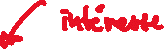 intéresse